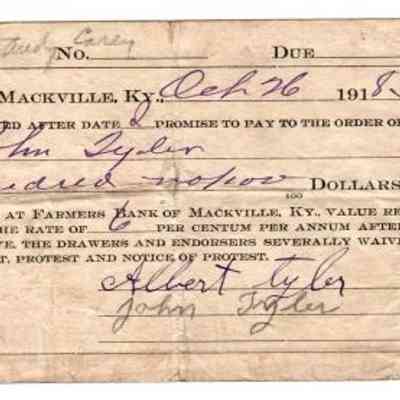 Carey
No. Due
Mackville, Ky., Oct 26 1918
ed after date promise to pay to the order of
ohn Tyler
ndred no/100 Dollars
at Farmers Bank of Mackville, Ky., value re
he rate of 6 per centum per annum after
ve. The drawers and endorsers severally waive
t, protest and notice of protest.
Albert Tyler
John Tyler